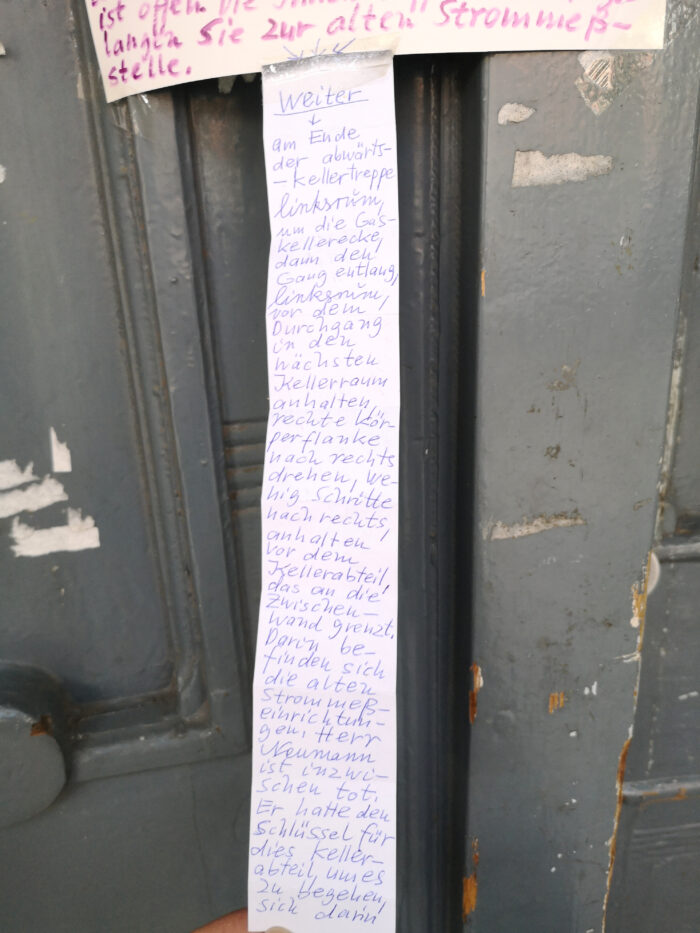 ist offen die
langen Sie zur alten Strommeß-
stelle.
Weiter
am Ende
der abwärts-
-Kellertreppe
linksrum,
um die Gas-
kellerecke,
dann den
Gang entlang,
linksrum,
vor dem
Durchgang
in den
nächsten
Kellerraum
anhalten,
rechte Kör-
perflanke
nach rechts
drehen, we-
nig Schritte
nach rechts,
anhalten
vor dem
Kellerabteil,
das an die
Zwischen-
wand grenzt.
Darin be-
finden sich
die alten
Strommeß-
einrichtun-
gen. Herr
Neumann
ist inzwi-
schen tot.
Er hatte den
Schlüssel für
dies Keller-
abteil, um es
zu begehen,
sich darin